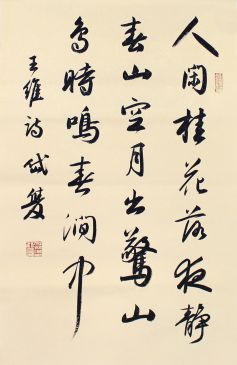 人閑桂花落夜靜
春山空月出驚山
鳥時鳴春澗中
王維詩